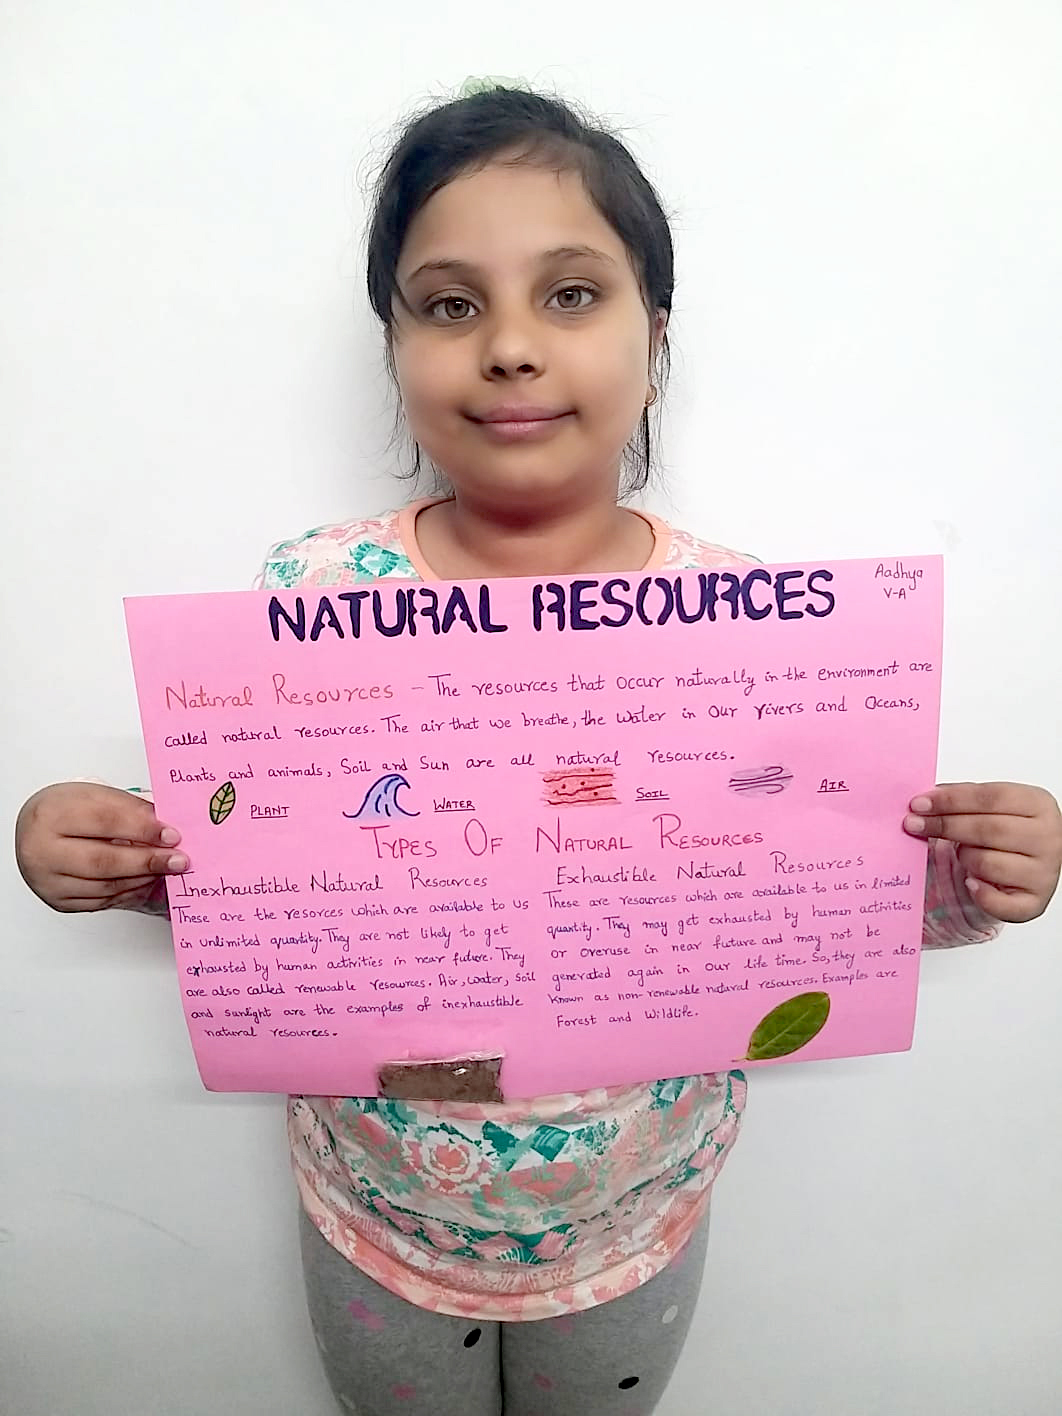 NATURAL RESOURCES
Aadhya
V-A
Natural Resources - The resources that occur naturally in the environment are
called natural resources. The air that we breathe, the water in our rivers and Oceans,
Plants and animals, Soil and Sun are all natural resources.
PLANT WATER SOIL AIR
TYPES OF NATURAL RESOURCES
Inexhaustible Natural Resources
These are the resorces which are available to us
in unlimited quantity. They are not likely to get
exhausted by human activities in near future. They
are also called renewable resources. Air, water, Soil
and sunlight are the examples of inexhaustible
natural resources.
Exhaustible Natural Resources
These are resources which are available to us in limited
quantity. They may get exhausted by human activities
or overuse in near future and may not be
generated again in our life time. So, they are also
known as non-renewable natural resources. Examples are
Forest and Wildlife.